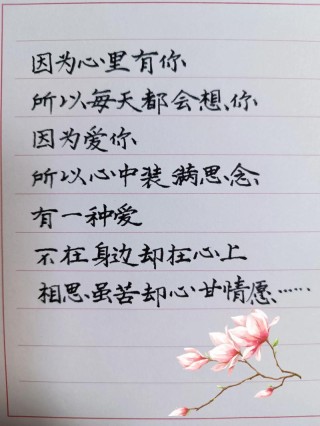 因为心里有你
所以每天都会想你
因为爱你
所以心中装满思念
有一种爱
不在身边却在心上
相思虽苦却心甘情愿……